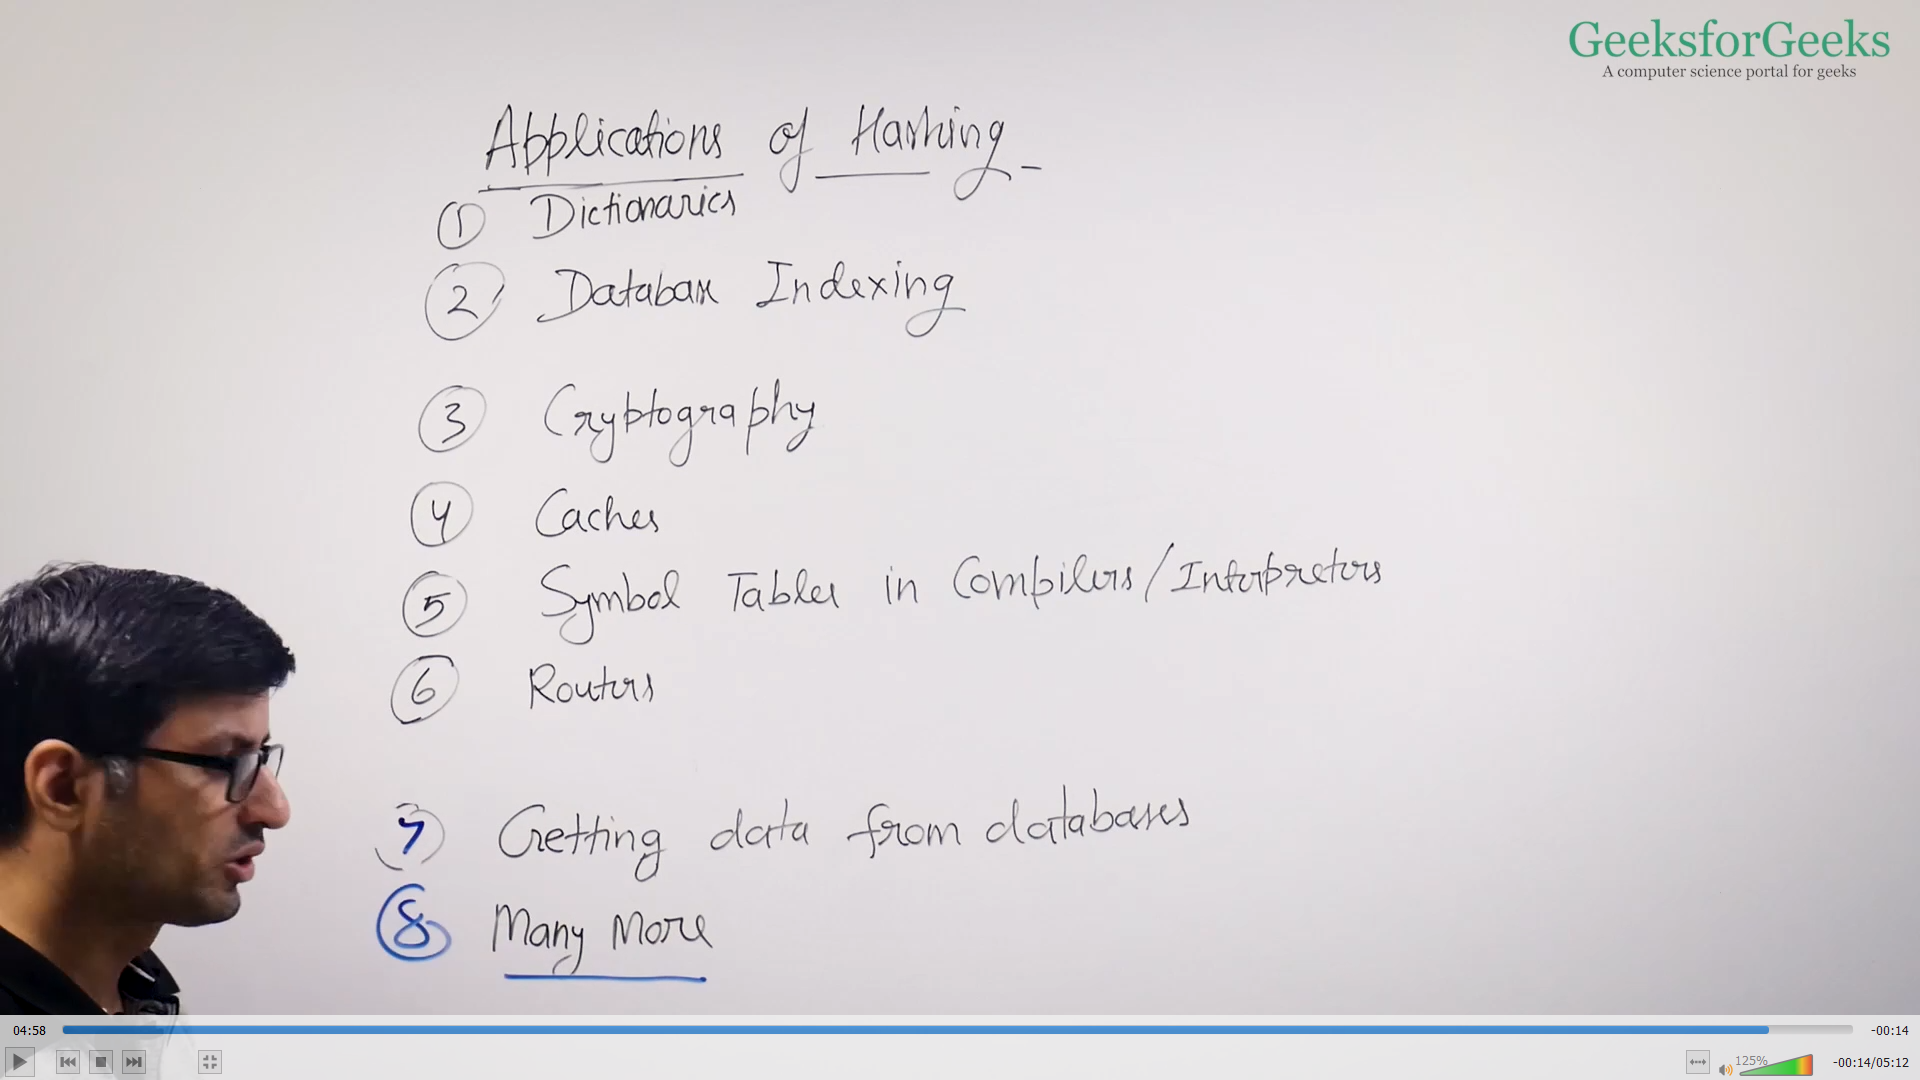 GeeksforGeeks
A computer science portal for geeks
Applications of Hashing -
1 Dictionaries
2 Database Indexing
3 Cryptography
4 Caches
5 Symbol Tables in Compilers/Interpretors
6 Routers
7 Getting data from databases
8 Many More
04:58
-00:14
125%
-00:14/05:12